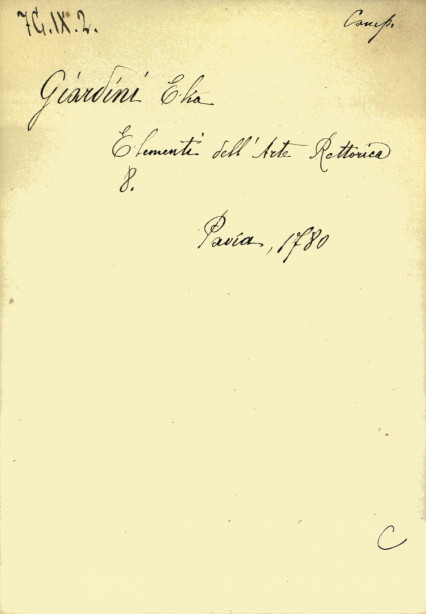 7G.IX.2.
Comp.
Giardini Elia
Elementi dell'Arte Rettorica
8.
Pavia, 1780
C